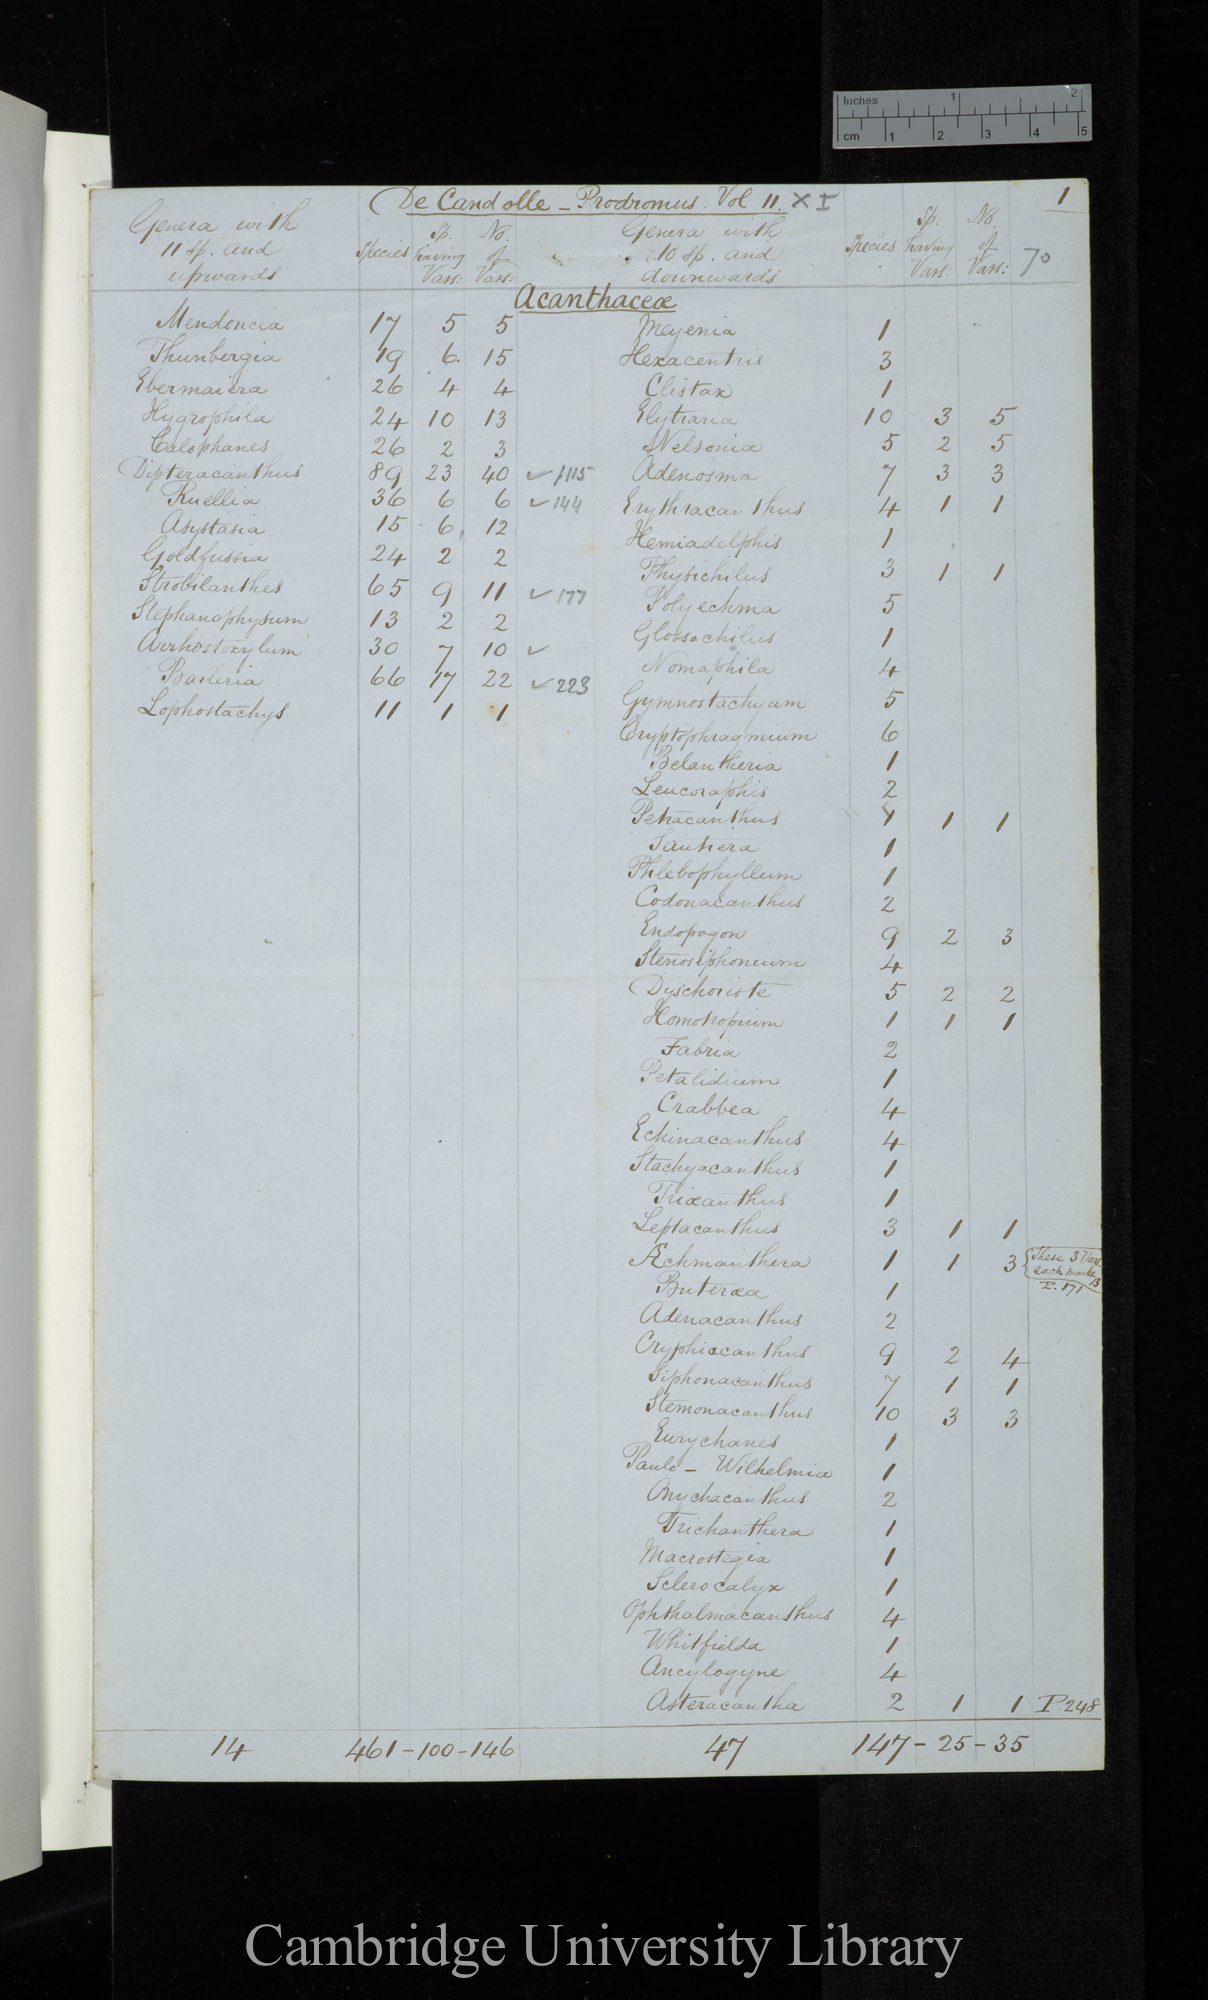 Inches 1 2
cm 1 2 3 4 5
De Candolle – Prodromus Vol 11. XI
1
70
Genera with 11 sp. and upwards | Species | Sp. having Vars: | No. of Vars: | Genera with 10 sp. and downwards | Species | Sp. having Vars: | No. of Vars:
Acanthaceæ
Mendoncia 17 5 5 Meyenia 1
Thunbergia 19 6 15 Hexacentris 3
Ebermaiera 26 4 4 Clistax 1
Hygrophila 24 10 13 Elytraria 10 3 5
Calophanes 26 2 3 Nelsonia 5 2 5
Dipteracanthus 89 23 40 ✓ 115 Adenosma 7 3 3
Ruellia 36 6 6 ✓ 144 Erythracanthus 4 1 1
Asystasia 15 6 12 Hemiadelphis 1
Goldfussia 24 2 2 Physichilus 3 1 1
Strobilanthes 65 9 11 ✓ 177 Polyechma 5
Stephanophysum 13 2 2 Glossochilus 1
Arrhostoxylum 30 7 10 ✓ Nomaphila 4
Barleria 66 17 22 ✓ 223 Gymnostachyum 5
Lophostachys 11 1 1 Cryptophragmium 6
Belantheria 1
Leucoraphis 2
Petracanthus 1 1 1
Sautiera 1
Phlebophyllum 1
Codonacanthus 2
Endopogon 9 2 3
Stenosiphonium 4
Dyschoriste 5 2 2
Homotropium 1 1 1
Fabria 2
Petalidium 1
Crabbea 4
Echinacanthus 4
Stachyacanthus 1
Trixanthus 1
Leptacanthus 3 1 1
Æchmanthera 1 1 3 {These 3 Vars. each marked B P. 171
Buteræa 1
Adenacanthus 2
Cryphiacanthus 9 2 4
Siphonacanthus 7 1 1
Stemonacanthus 10 3 3
Eurychanes 1
Paulo – Wilhelmia 1
Onychacanthus 2
Trichanthera 1
Macrostegia 1
Sclerocalyx 1
Ophthalmacanthus 4
Whitfieldia 1
Ancylogyne 4
Asteracantha 2 1 1 P. 248
14 461 – 100 – 146 47 147 – 25 – 35
Cambridge University Library